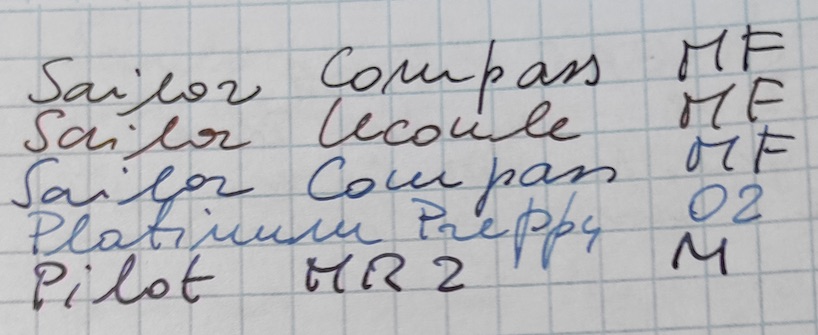 Sailor Compass MF
Sailor Lecoule MF
Sailor Compass MF
Platinum Preppy 02
Pilot MR2 M